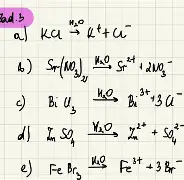 Zad. 3
a) KCl →^{H₂O} K⁺ + Cl⁻
b) Sr(NO₃)₂ →^{H₂O} Sr²⁺ + 2NO₃⁻
c) BiCl₃ →^{H₂O} Bi³⁺ + 3Cl⁻
d) ZnSO₄ →^{H₂O} Zn²⁺ + SO₄²⁻
e) FeBr₃ →^{H₂O} Fe³⁺ + 3Br⁻